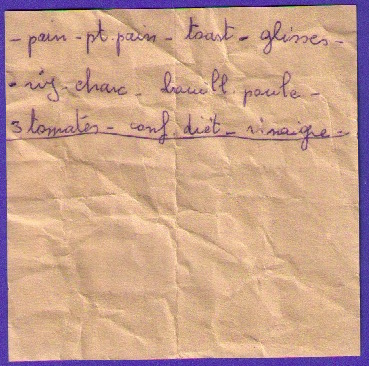 - pain - pt. pain - toast - glisses -
- riz - charc - bouill. poule -
3 tomates - conf. diét - vinaigre -